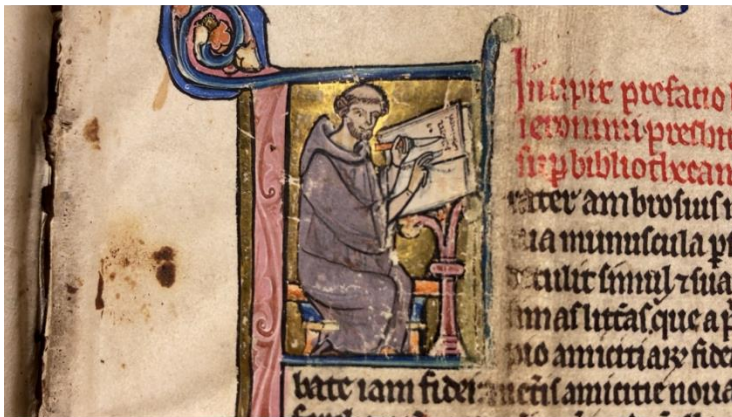 Incipit prefacio
ieronimi presbit
sup bibliothecam
rater ambrosius
ua munuscula
tulit simul ⁊ sua
mas litt̃as que a
pio amicitiaꝝ fide
bate iam fidei amicitie noua